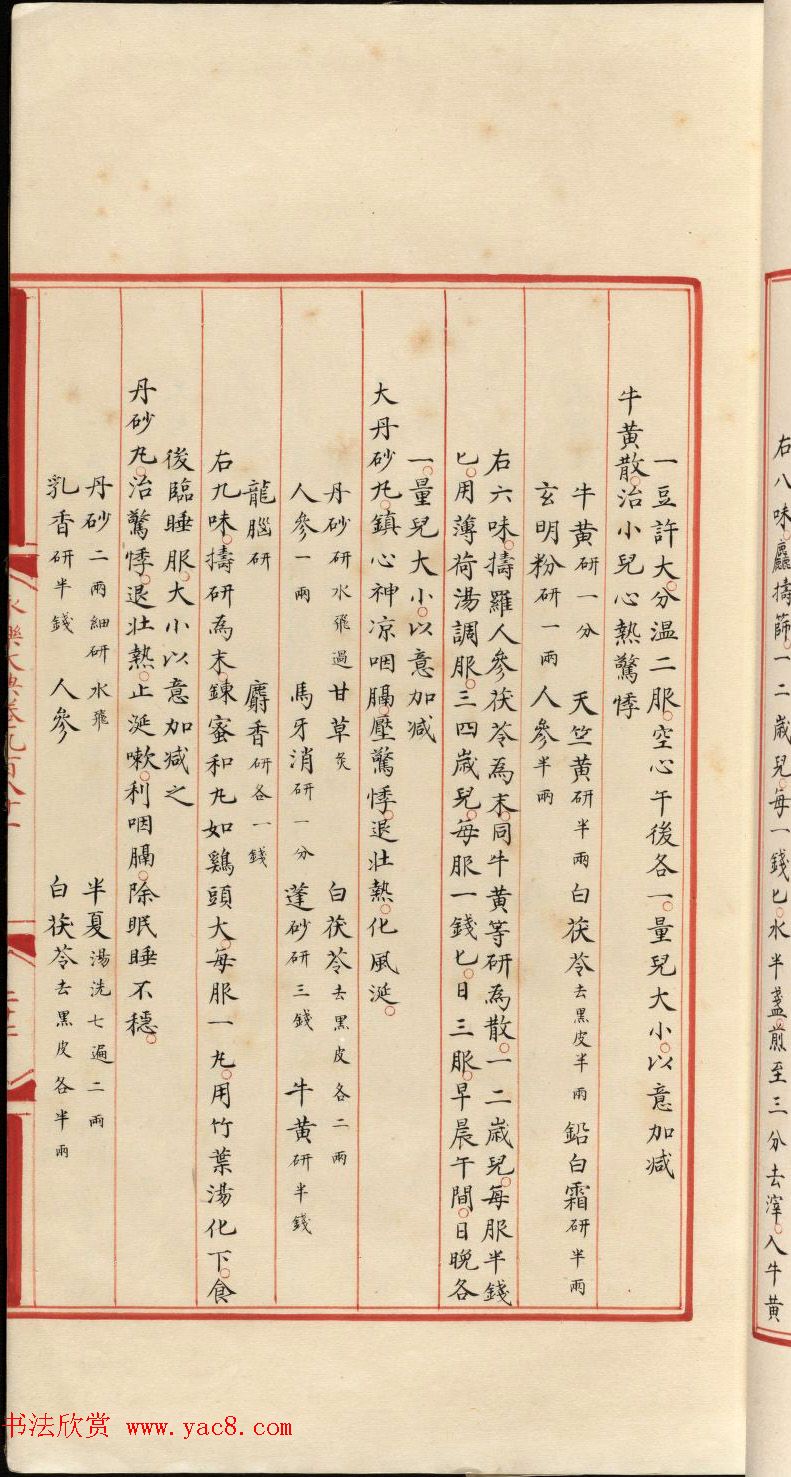 右八味。麤擣篩。一二歲兒。每一錢匕。水半盞。煎至三分去滓。入牛黃
一豆許大。分溫二服。空心午後各一。量兒大小。以意加减
牛黃散。治小兒心熱驚悸
牛黃研一分 天竺黃研半兩 白茯苓去黑皮半兩 鉛白霜研半兩
玄明粉研一兩 人參半兩
右六味。擣羅人參茯苓為末。同牛黃等研為散。一二歲兒。每服半錢
匕。用薄荷湯調服。三四歲兒。每服一錢匕。日三服。早晨午間。日晚各
一。量兒大小。以意加减
大丹砂丸。鎮心神凉咽膈。壓驚悸。退壯熱。化風涎。
丹砂研水飛過 甘草炙 白茯苓去黑皮各二兩
人參一兩 馬牙消研一分 蓬砂研三錢 牛黃研半錢
龍腦研 麝香研各一錢
右九味。擣研為末。鍊蜜和丸如鷄頭大。每服一丸。用竹葉湯化下。食
後臨睡服。大小以意加减之
丹砂丸。治驚悸。退壯熱。止涎嗽。利咽膈。除眠睡不穩。
丹砂二兩細研水飛 半夏湯洗七遍二兩
乳香研半錢 人參 白茯苓去黑皮各半兩
永樂大典卷九百八十一
书法欣赏 www.yac8.com